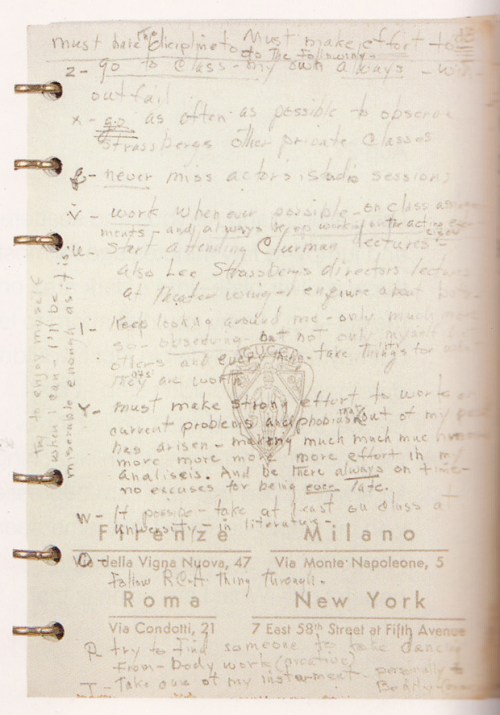 must have the dicipline to Must make effort to do
do the following -
z - go to class - my own always - with
out fail
x - go as often as possible to observe
Strassbergs other private classes
g - never miss actors studio sessions
v - work whenever possible - on class assign
ments - and always keep working on the acting exer
cises
u - Start attending Clurman lectures -
also Lee Strassbergs directors lectures
at theater wing - enquire about both
l - keep looking around me - only much more
so - observing - but not only myself but
others and everything - take things for what
they are worth
y - must make strong effort to work on
current problems and phobias that out of my past
has arisen - making much much much
more more more more more effort in my
analisis. And be there always on time -
no excuses for being ever late.
w - if possible - take at least one class at
university - in literature -
Firenze Milano
Via della Vigna Nuova, 47 Via Monte Napoleone, 5
o - follow RCA thing through.
Roma New York
Via Condotti, 21 7 East 58th Street at Fifth Avenue
p - try to find someone to take dancing
from - body work (creative)
t - take care of my instrument - personally &
bodily
try to enjoy myself
when I can - I'll be
miserable enough as it is.
GUCCI